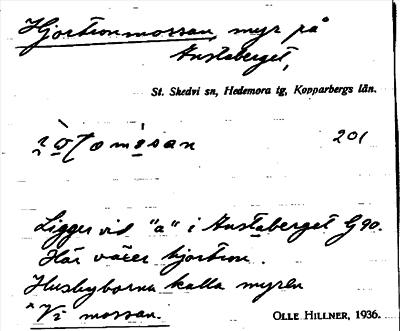 Hjortronmossan, myr på
Anstaberget,
St. Skedvi sn, Hedemora tg, Kopparbergs län.
201
Ligger vid "a" i Anstaberget G 90.
Här växer hjortron.
Husbyborna kalla myren
"Vi mossan.
OLLE HILLNER, 1936.